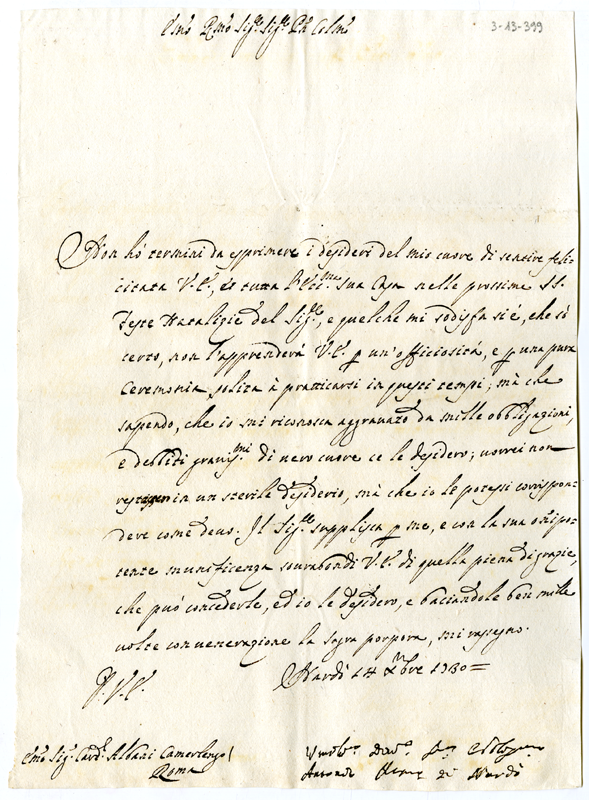 Em̃o Rmõ Sig.re Sig.re P̃ne Colmõ
3-13-399
Non hò termini da esprimere i desiderj del mio cuore di sentire feli-
citata V.E., e tutta l'Ecc.ma sua Casa nelle prossime SS.
feste Natalizie del Sig.re, e quelche mi sodisfa si è, che sò
certo, non l'apprenderà V.E. p un'officiosità, e p una pura
Ceremonia, solita à pratticarsi in questi tempi; mà che
sapendo, che io mi riconosca aggravato da mille obbligazioni,
e debbiti graviss.mi di vero cuore ce le desidero; vorrei non
in un sterile desiderio, mà che io le potessi corrispon-
dere come devo. Il Sig.re supplisca p me, e con la sua onipo-
tente munificenza sovrabondi V.E. di quella piena di grazie,
che può concederle, ed io le desidero, e baciandole ben mille
volte con venerazione la sagra porpora, mi rassegno.
Nardò 14 Xbre 1730=
D. V. E.
Em̃o Sig. Card. Albani Camerlengo
Roma
Umilis. Devo.
Antonio di Nardò